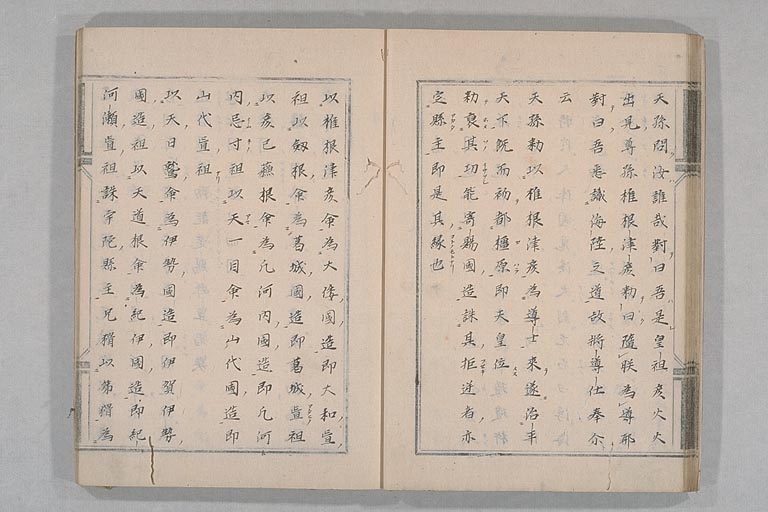 天孫問汝誰哉對曰吾是皇祖彦火火
出見尊孫椎根津彦勅曰隨朕為導耶
對曰吾悉識海陸之道故將導仕奉尒
云
天孫勅以椎根津彦為導士来遂治平
天下既而初都橿原即天皇位
勅褒其功能寄賜國造誅其拒逆者亦
定縣主即是其縁也
以椎根津彦命為大倭國造即大和直
祖以劔根命為葛城國造即葛城直祖
以彦己蘓根命為凡河内國造即凡河
内忌寸祖以天一目命為山代國造即
山代直祖
以天日鷲命為伊勢國造即伊賀伊勢
國造祖以天道根命為紀伊國造即紀
河瀬直祖誅宇陀縣主兄猾以弟猾為